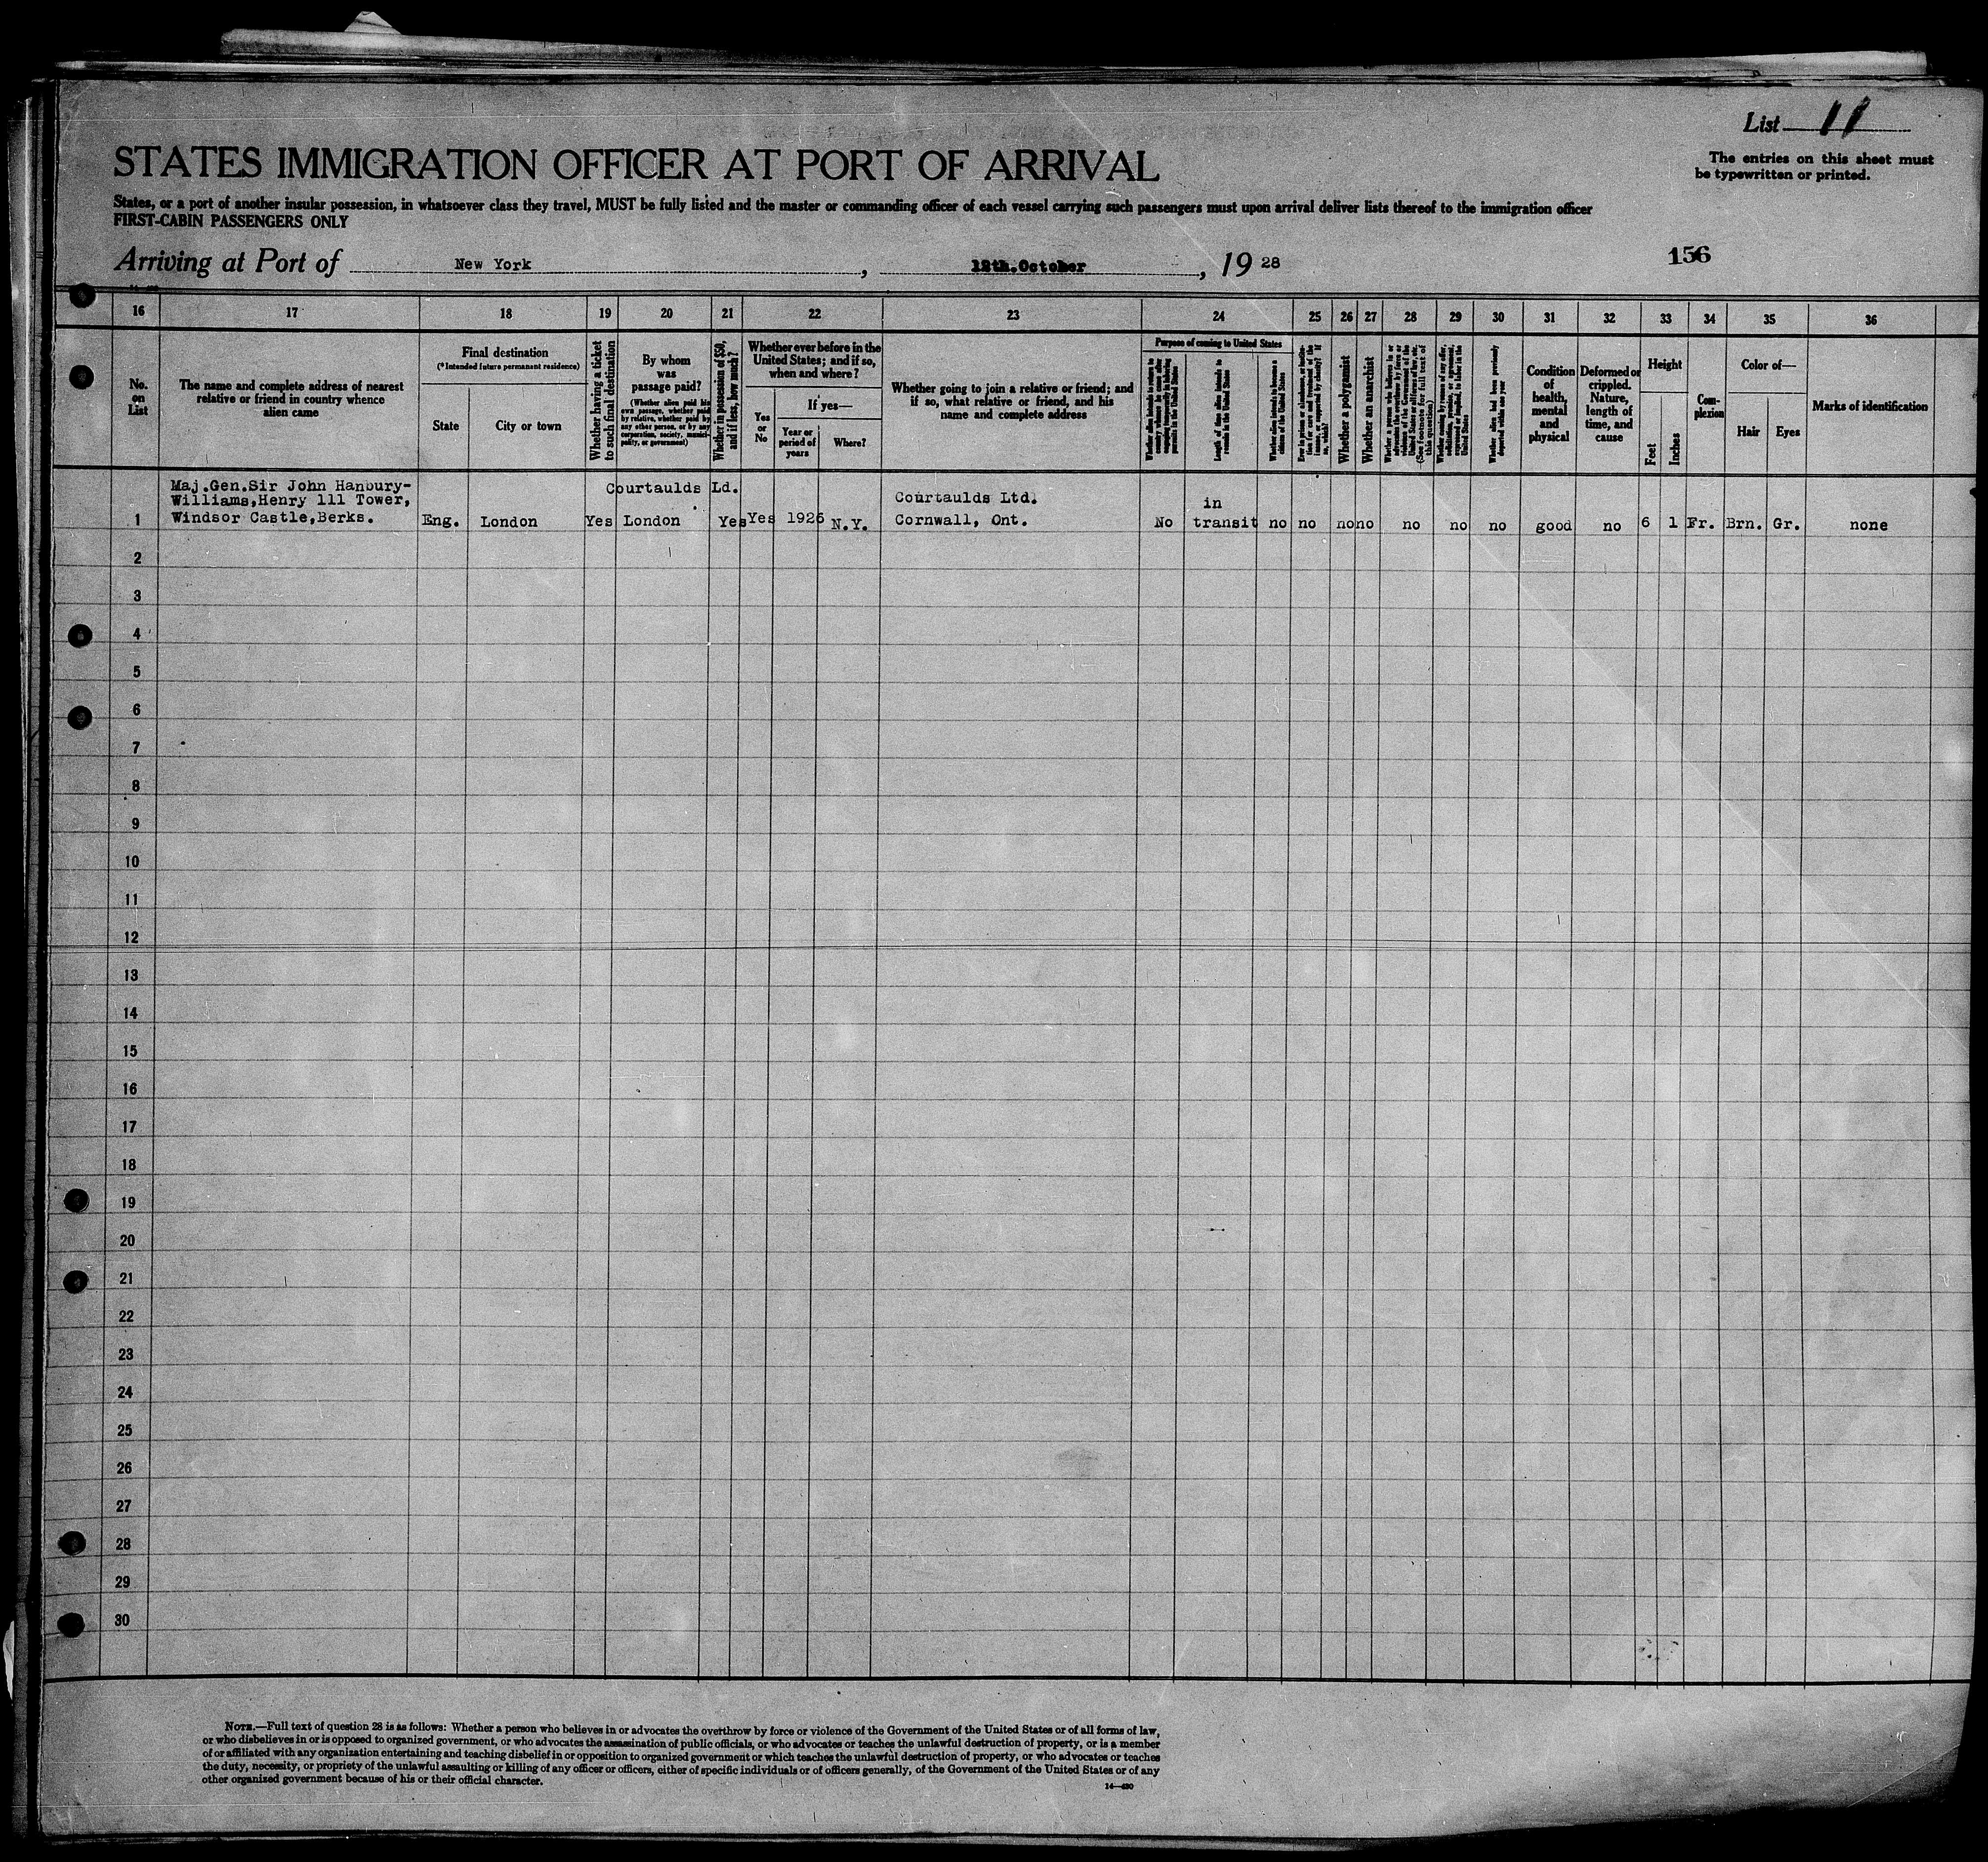 List 11
The entries on this sheet must
be typewritten or printed.
STATES IMMIGRATION OFFICER AT PORT OF ARRIVAL
States, or a port of another insular possession, in whatsoever class they travel, MUST be fully listed and the master or commanding officer of each vessel carrying such passengers must upon arrival deliver lists thereof to the immigration officer
FIRST-CABIN PASSENGERS ONLY
Arriving at Port of New York, 12th.October, 1928
156
16 17 18 19 20 21 22 23 24 25 26 27 28 29 30 31 32 33 34 35 36
No.
on
List
The name and complete address of nearest
relative or friend in country whence
alien came
Final destination
(*Intended future permanent residence)
State
City or town
Whether having a ticket
to such final destination
By whom
was
passage paid?
(Whether alien paid his
own passage, whether paid
by relative, whether paid by
any other person, or by any
corporation, society, munici-
pality, or government)
Whether in possession of $50,
and if less, how much?
Whether ever before in the
United States; and if so,
when and where?
Yes
or
No
If yes—
Year or
period of
years
Where?
Whether going to join a relative or friend; and
if so, what relative or friend, and his
name and complete address
Purpose of coming to United States
Whether alien intends to return to
country whence he came after
engaging temporarily in laboring
pursuits in the United States
Length of time alien intends to
remain in the United States
Whether alien intends to become a
citizen of the United States
Ever in prison or almshouse, or institu-
tion for care and treatment of the
insane, or supported by charity? If
so, which?
Whether a polygamist
Whether an anarchist
Whether a person who believes in or
advocates the overthrow by force or
violence of the Government of the
United States or all forms of law, etc.
(See footnote for full text of
this question)
Whether coming by reason of any offer,
solicitation, promise, or agreement,
expressed or implied, to labor in the
United States
Whether alien had been previously
deported within one year
Condition
of
health,
mental
and
physical
Deformed or
crippled.
Nature,
length of
time, and
cause
Height
Feet
Inches
Com-
plexion
Color of—
Hair
Eyes
Marks of identification
Maj.Gen.Sir John Hanbury-
Williams,Henry 111 Tower,
Windsor Castle,Berks.
1
Eng. London Yes
Courtaulds Ld.
London
Yes Yes 1926 N.Y.
Courtaulds Ltd.
Cornwall, Ont.
No
in
transit
no no no no no no no good no 6 1 Fr. Brn. Gr. none
2
3
4
5
6
7
8
9
10
11
12
13
14
15
16
17
18
19
20
21
22
23
24
25
26
27
28
29
30
NOTE.—Full text of question 28 is as follows: Whether a person who believes in or advocates the overthrow by force or violence of the Government of the United States or of all forms of law,
or who disbelieves in or is opposed to organized government, or who advocates the assassination of public officials, or who advocates or teaches the unlawful destruction of property, or is a member
of or affiliated with any organization entertaining and teaching disbelief in or opposition to organized government or which teaches the unlawful destruction of property, or who advocates or teaches
the duty, necessity, or propriety of the unlawful assaulting or killing of any officer or officers, either of specific individuals or of officers generally, of the Government of the United States or of any
other organized government because of his or their official character.
14—430